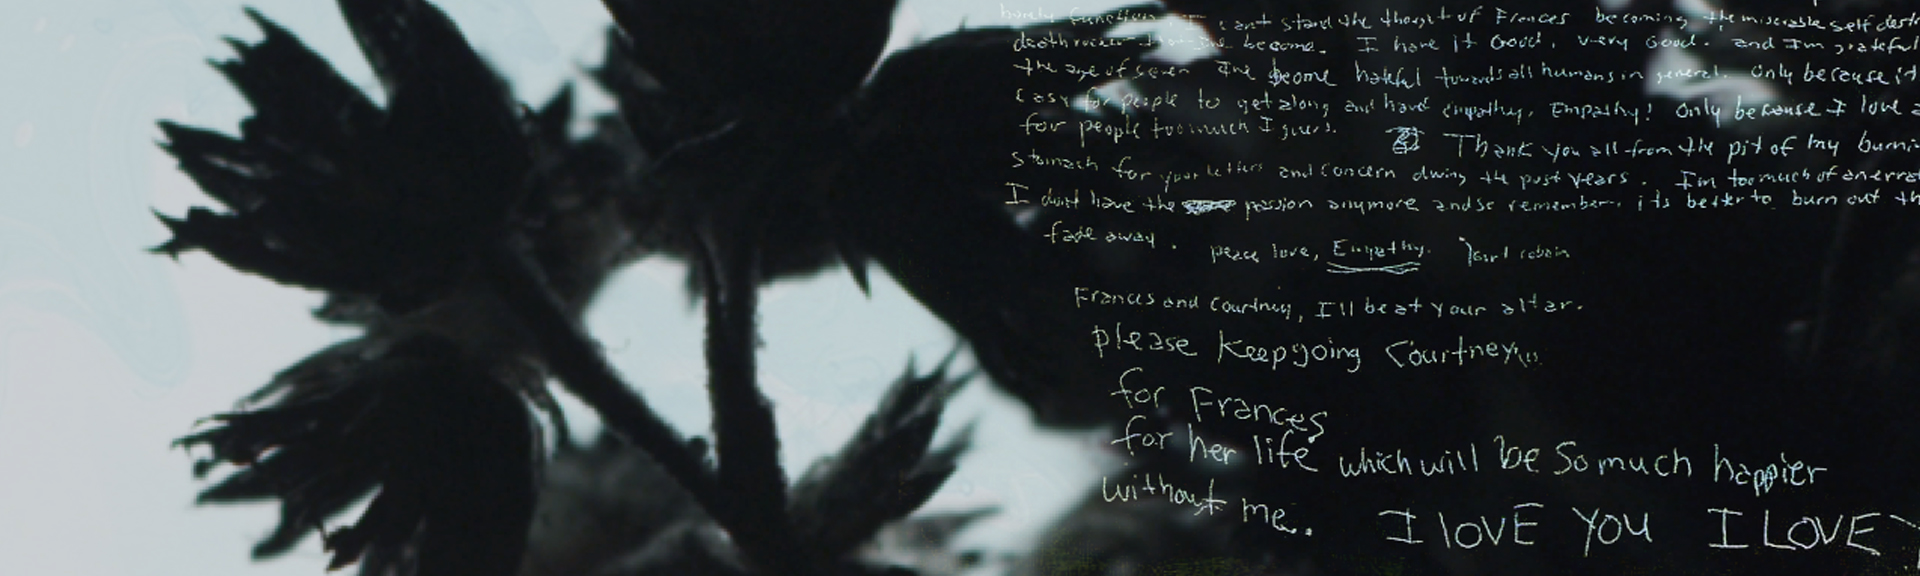 barely function. can't stand the thought of Frances becoming the miserable self destr
death rocker that I've become. I have it Good, very Good. and I'm grateful
the age of seven I've become hateful towards all humans in general. Only because it
Easy for people to get along and have empathy. Empathy! Only because I love a
for people too much I guess. Thank you all from the pit of my burni
stomach for your letters and concern during the past years. I'm too much of an errat
I don't have the passion anymore and so remember, its better to burn out th
fade away. peace love, Empathy. Kurt Cobain
Frances and Courtney, I'll be at your altar.
please Keep going Courtney
for Frances
for her life which will be so much happier
without me. I LOVE YOU I LOVE